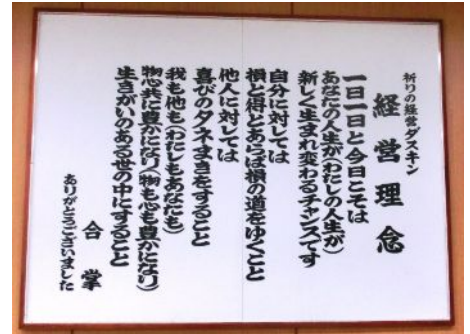 祈りの経営ダスキン
経営理念
一日一日と今日こそは
あなたの人生が(わたしの人生が)
新しく生まれ変わるチャンスです
自分に対しては
損と得とあらば損の道をゆくこと
他人に対しては
喜びのタネまきをすること
我も他も(わたしもあなたも)
物心共に豊かになり(物も心も豊かになり)
生きがいのある世の中にすること
合掌
ありがとうございました